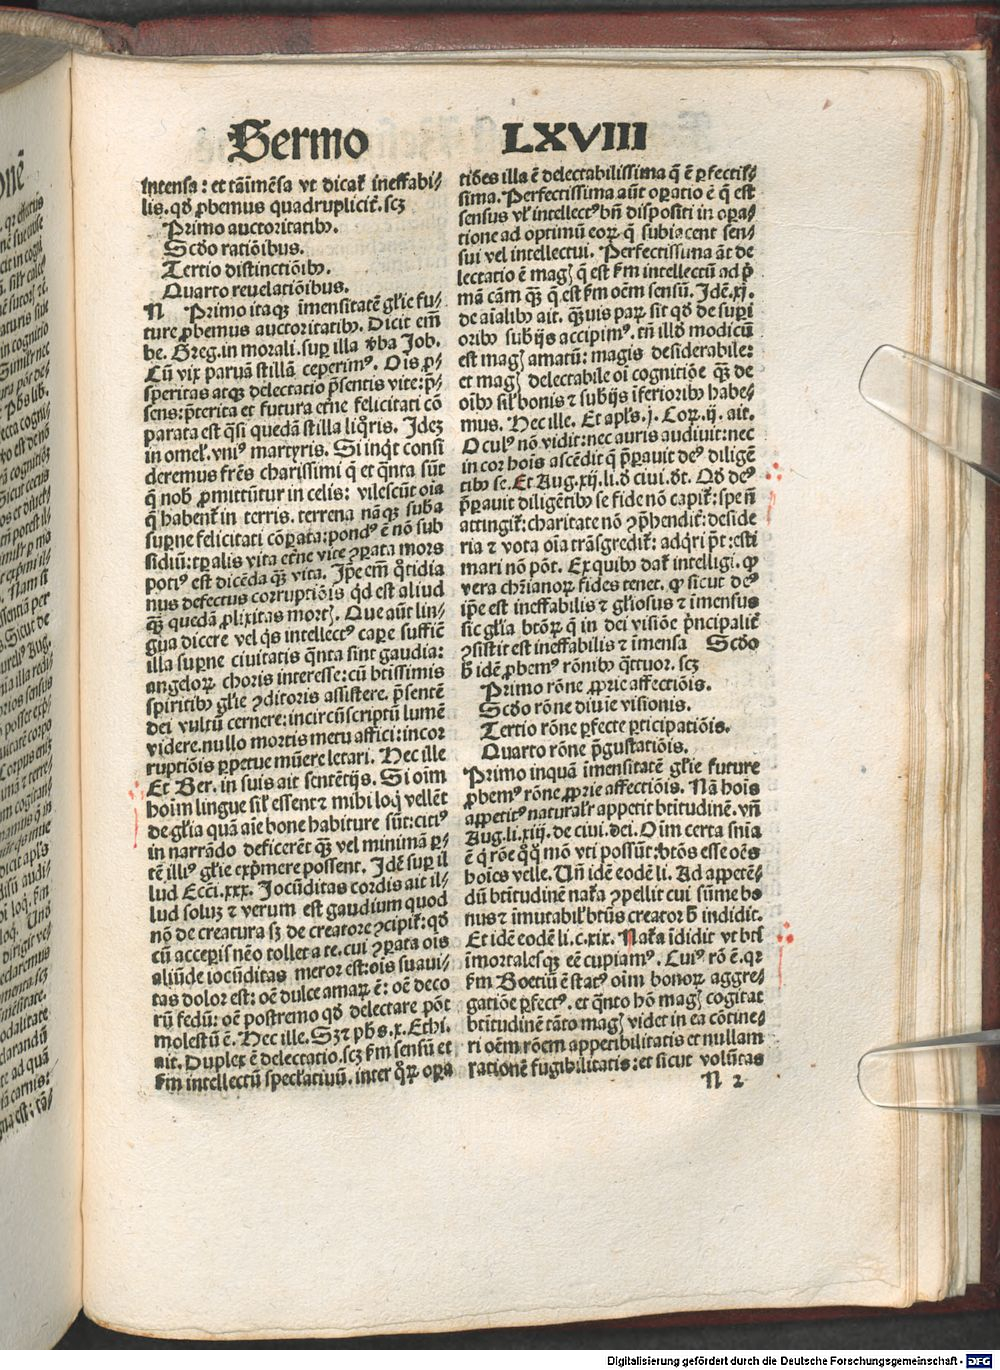 Sermo LXVIII
intensa: et tāimēsa vt dicat̉ ineffabi⸗
lis. qđ ꝓbemus quadruplicit̉. scꝫ
Primo auctoritatibꝰ.
Scđo ratiōibus.
Tertio distinctiōibꝰ.
Quarto reuelatiōibus.
N Primo itaqꝫ īmensitatē gl̄ie fu⸗
ture ꝓbemus auctoritatibꝰ. Dicit em̄
be. Greg. in morali. suꝑ illa v̉ba Job.
Cū vix paruā stillā ceperimꝰ. Ois ꝓ⸗
speritas atqꝫ delectatio p̄sentis vite: p̄⸗
sens: p̄terita et futura etn̄e felicitati cō
parata est q̄si quedā stilla liq̄ris. Ideꝫ
in omel̓. vniꝰ martyris. Si inqt̓ consi
deremus frēs charissimi q̄ et q̄nta sūt
q̄ nob̓ ꝓmittūtur in celis: vilescūt oīa
q̄ habent̉ in terris. terrena nāqꝫ suba
suꝑne felicitati cōꝑata: pondꝰ ē nō sub
sidiū: tꝑalis vita etn̄e vite ꝯꝑata mors
potiꝰ est dicēda qꝫ̄ vita. Ip̄e em̄ q̄tidia
nus defectus corruptiōis qd̓ est aliud
qꝫ̄ quedā ꝓlixitas mortꝭ. Que aūt lin⸗
gua dicere vel q̄s intellectꝰ caꝑe suffic̄
illa suꝑne ciuitatis q̄nta sint gaudia:
angeloꝝ choris interesse: cū btissimis
spiritibꝰ gl̄ie ꝯditoris assistere. p̄sentē
dei vultū cernere: incircūscriptū lumē
videre. nullo mortis metu affici: incor
ruptiōis ꝑpetue mūere letari. Hec ille
Et Ber. in suis ait sentētijs. Si oīm
hoīm lingue sil̓ essent ⁊ mihi loq̄ vellēt
de gl̄ia quā aīe bone habiture sūt: citiꝰ
in narrādo deficerēt qꝫ̄ vel minimā ꝑ⸗
tē illiꝰ gl̄ie exp̄mere possent. Idē suꝑ il
lud Ecci. xxx. Jocūditas cordis ait il⸗
lud soluꝫ ⁊ verum est gaudium quod
nō de creatura sꝫ de creatore ꝯcipit̉: qđ
cū acceꝑis nēo tollet a te. cui ꝯꝑata ois
aliūde iocūditas meror est: ois suaui⸗
tas dolor est: oē dulce amaꝝ ē: oē deco
rū fedū: oē postremo qđ delectare pōt
molestū ē. Hec ille. Sꝫ ⁊ ph̓s. x. Ethi.
ait. Duplex ē delectatio. scꝫ ẜm sensū et
ẜm intellectū specl̓atiuū. inter q̄ꝝ oꝑa
tiōes illa ē delectabilissima q̄ ē ꝑfectis⸗
sima. Perfectissima aūt oꝑatio ē q̄ est
sensus vl̓ intellectꝰ bn̄ dispositi in oꝑa⸗
tione ad optimū eoꝝ q̄ subiacent sen⸗
sui vel intellectui. Perfectissima āt de
lectatio ē magꝭ q̄ est ẜm intellectū ad p̄
mā cām qꝫ̄ q̄ est ẜm oēm sensū. Idē. xj.
de aīalibꝰ ait. q̄uis paꝝ sit qđ de suꝑi
oribꝰ subijs accipimꝰ. tn̄ illđ modicū
est magꝭ amatū: magis desiderabile:
et magꝭ delectabile oi cognitiōe qꝫ̄ de
oībꝰ sil̓ bonis ⁊ subijs īferioribꝰ habe⸗
mus. Hec ille. Et apl̓s. j. Coꝝ. ij. ait.
Oculꝰ nō vidit: nec auris audiuit: nec
in cor hoīs ascēdit q̄ p̄ꝑauit deꝰ diligē
tibꝰ se. Et Aug. xij. li. đ ciui. đt. Qđ deꝰ
p̄ꝑauit diligētibꝰ se fide nō capit̉: spe n̄
attingit̉: charitate nō ꝯp̄hendit̉: deside
ria ⁊ vota oīa trāsgredit̉: adq̄ri p̄t: esti
mari nō pōt. Ex quibꝰ dat̉ intelligi. ꝙ
vera chr̄ianoꝝ fides tenet. ꝙ sicut deꝰ
ip̄e est ineffabilis ⁊ gl̄iosus ⁊ īmensus
sic gl̄ia btōꝝ q̄ in dei visiōe p̄ncipalit̉
ꝯsistit est ineffabilis ⁊ īmensa Scđo
h̄ idē ꝓbemꝰ rōnibꝰ q̄ttuor. scꝫ
Primo rōne ꝓprie affectiōis.
Scđo rōne diuīe visionis.
Tertio rōne ꝑfecte ꝑticipatiōis.
Quarto rōne p̄gustatiōis.
Primo inquā īmensitatē gl̄ie future
ꝓbemꝰ rōne ꝓprie affectiōis. Nā hoīs
appetitꝰ naturalr̄ appetit btitudinē. vn̄
Aug. li. xiij. de ciui. dei. Oīm certa sn̄ia
ē q̄ rōe q̄q̄ mō vti possūt: btōs esse oēs
hoīes velle. Un̄ idē eodē li. Ad appetē⸗
dū btitudinē nat̉a ꝯpellit cui sūme bo
nus ⁊ īmutabil̓ btūs creator h̄ indidit.
Et idē eodē li. c. xix. Nat̉a īdidit vt bti
īmortalesqꝫ eē cupiamꝰ. Cuiꝰ rō ē. qr
ẜm Boetiū ē statꝰ oīm bonoꝝ aggre⸗
gatiōe ꝑfectꝰ. et q̄nto hō magꝭ cogitat
btitudinē tāto magꝭ videt in ea cōtine⸗
ri oēm rōem appetibilitatis et nullam
rationē fugibilitatis: et sicut volūtas
N 2
Digitalisierung gefördert durch die Deutsche Forschungsgemeinschaft - DFG